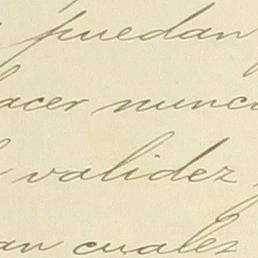 puedan
hacer nunca
validez
an cuales